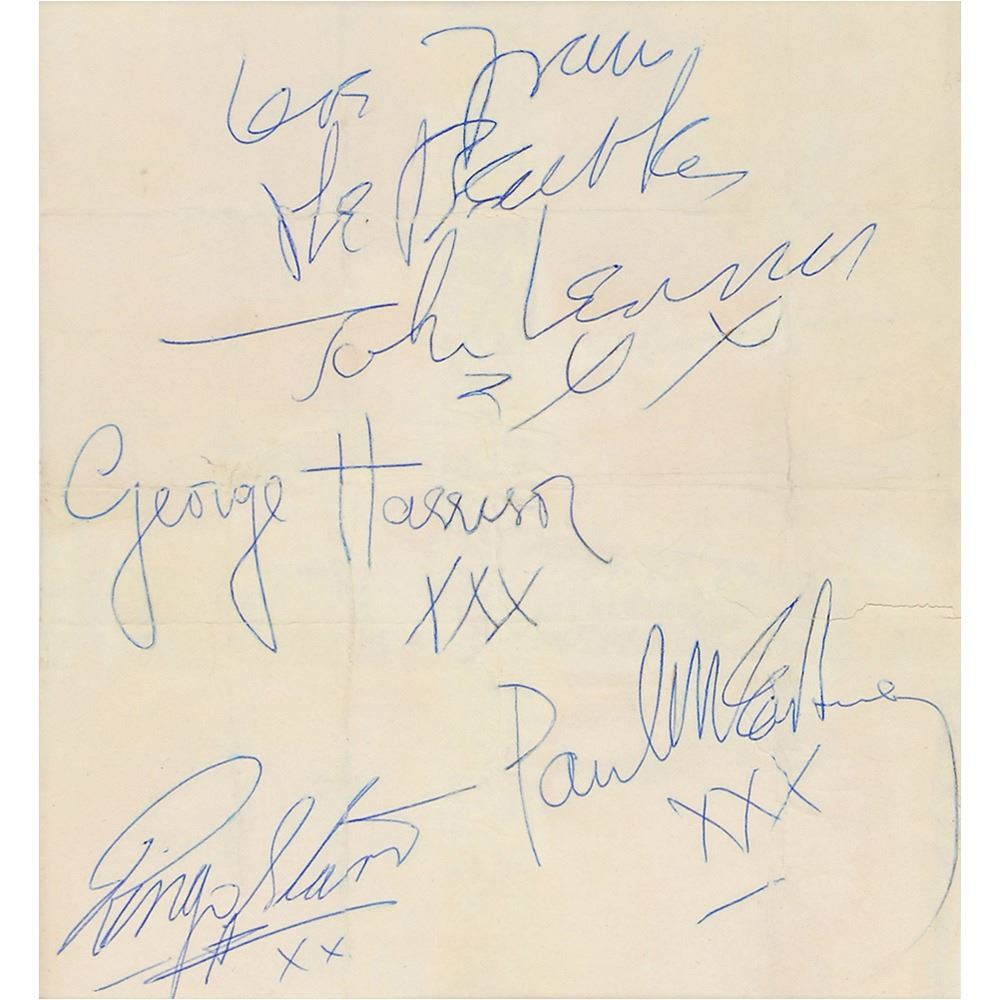 love from
The Beatles
John Lennon
George Harrison
XXX
Paul McCartney
XXX
Ringo Starr
xx